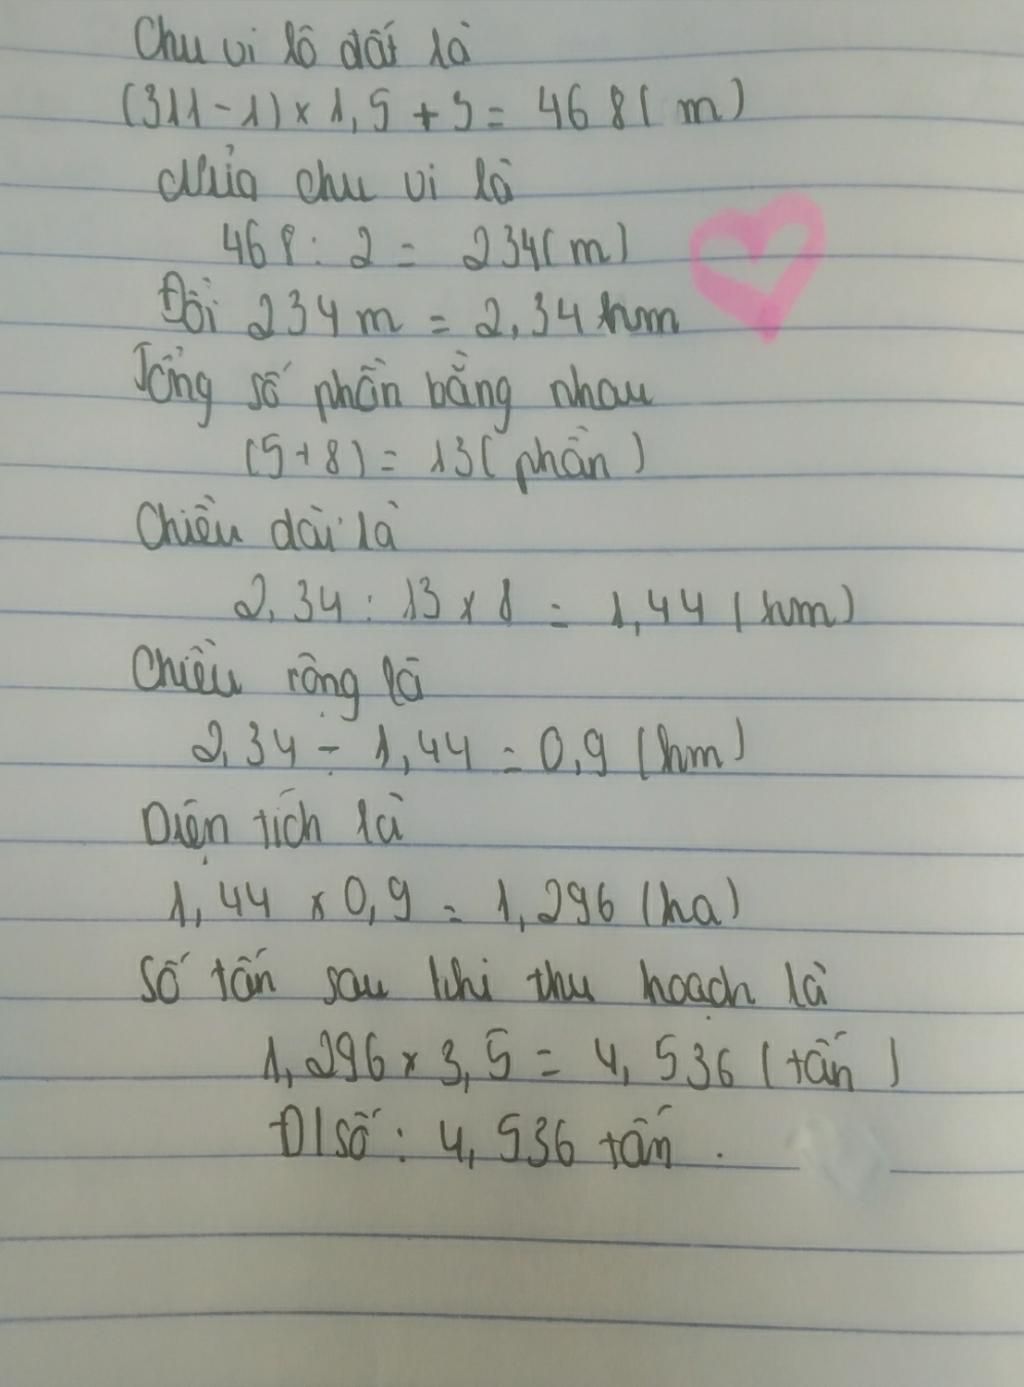 Chu vi lô đất là
(311-1)×1,5+3=468(m)
Nửa chu vi là
468:2=234(m)
Đổi 234m=2,34hm
Tổng số phần bằng nhau
(5+8)=13(phần)
Chiều dài là
2,34:13×8=1,44(hm)
Chiều rộng là
2,34-1,44=0,9(hm)
Diện tích là
1,44×0,9=1,296(ha)
Số tấn sau khi thu hoạch là
1,296×3,5=4,536(tấn)
Đ/số: 4,536 tấn.